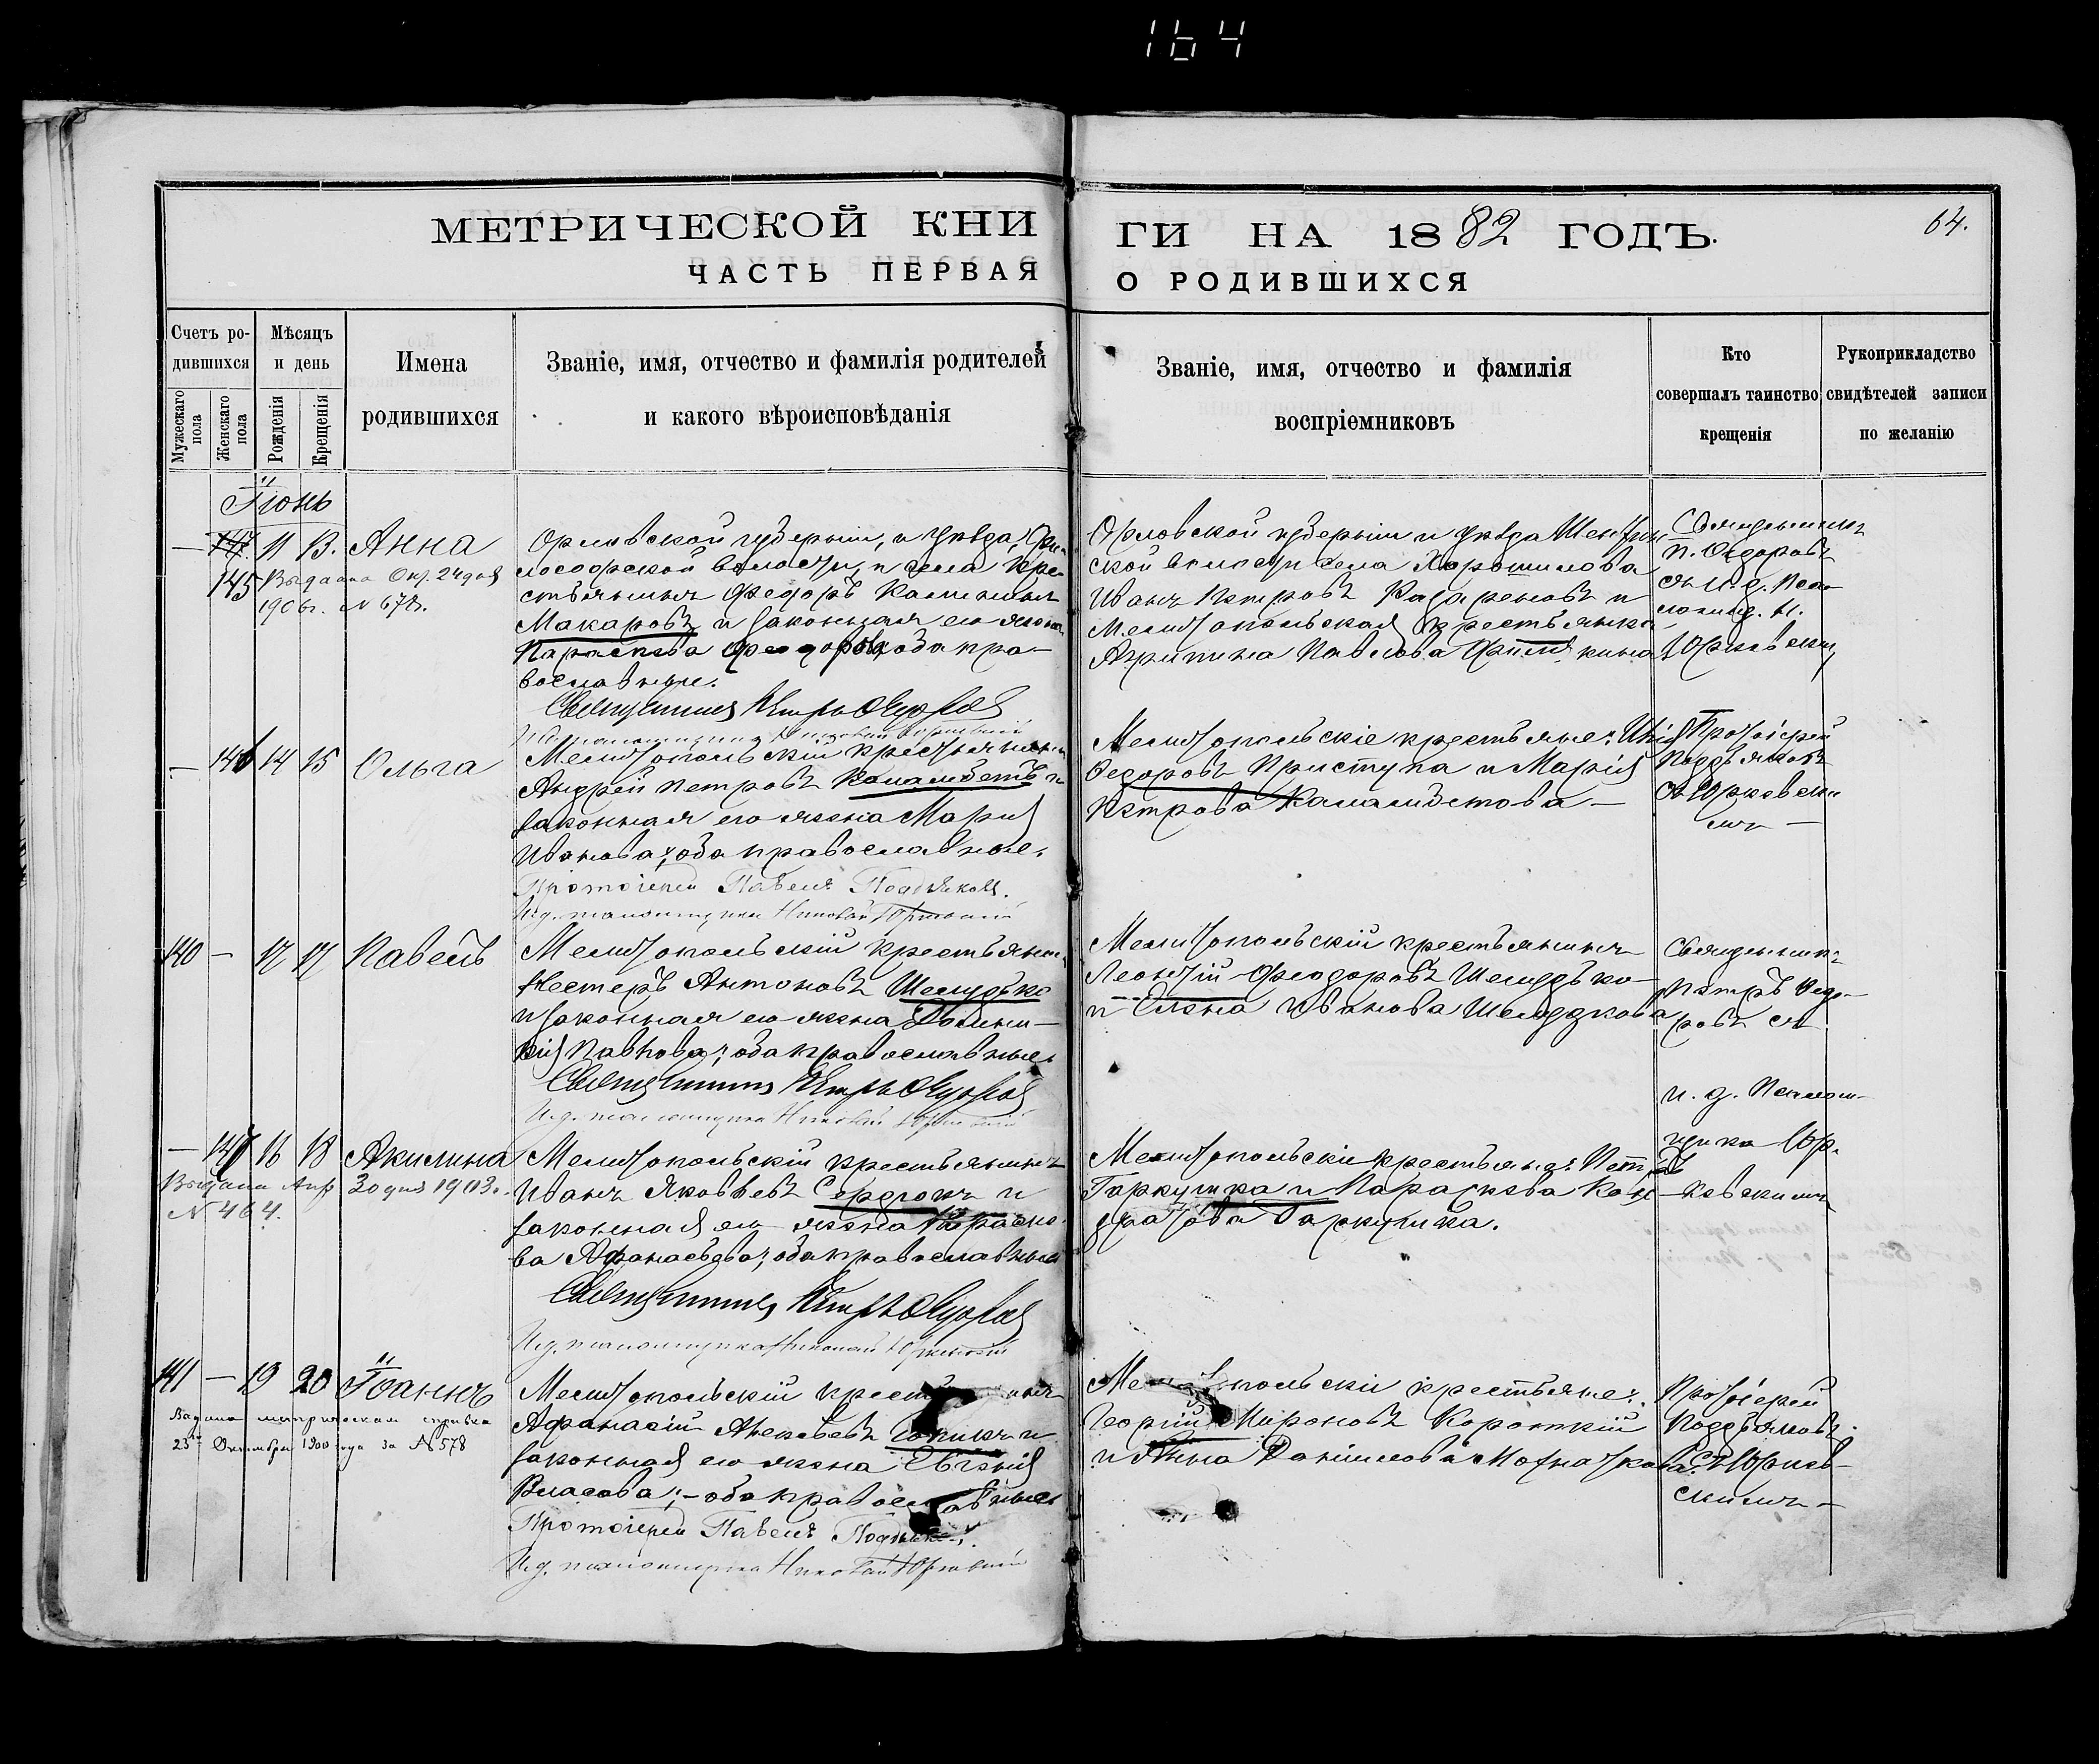 164
МЕТРИЧЕСКОЙ КНИ
ГИ НА 1882 ГОДЪ.
64.
ЧАСТЬ ПЕРВАЯ
О РОДИВШИХСЯ
Счетъ ро-
дившихся
Мѣсяцъ
и день
Имена
родившихся
Званіе, имя, отчество и фамилія родителей
и какого вѣроисповѣданія
Званіе, имя, отчество и фамилія
воспріемниковъ
Кто
совершалъ таинство
крещенія
Рукоприкладство
свидѣтелей записи
по желанію
Мужескаго
пола
Женскаго
пола
Рожденія
Крещенія
Іюнь
— 145 11 13. Анна
Выдана Окт. 24 дня
1906 г. N 678.
Орловской губерніи, и уѣзда,
волости, и села кре-
стьянинъ Феодоръ
Макаровъ и законная его жена
Параскева Феодорова, оба пра-
вославные.
Священникъ Петръ Ѳедоровъ
Орловской губерніи и уѣзда
ской волости села Хорошилова
Иванъ Петровъ и
Мелитопольская крестьянка
Агрипина Павлова
Священникъ
П. Ѳедоровъ
съ и. д. Пса-
ломщ. Н.
Юрковскимъ
— 146 14 15 Ольга
Мелитопольскій крестьянинъ
Андрей Петровъ и
законная его жена Марія
Иванова; оба православные.
Протоіерей Павелъ Поддьяковъ.
И. д. псаломщика Николай Юрковскій
Мелитопольскіе крестьяне:
Ѳедоровъ Приступа и Марія
Петрова —
Протоіерей
Поддьяковъ
съ Юрковски-
мъ —
140 — 17 17 Павелъ
Мелитопольскій крестьянинъ
Нестеръ Антоновъ Шелудько
и законная его жена
Павлова; оба православные.
Священникъ Петръ Ѳедоровъ
И. д. псаломщика Николай Юрковскій
Мелитопольскій крестьянинъ
Леонтій Феодоровъ Шелудько
и Елена Иванова Шелудкова
Священникъ
Петръ Ѳедо-
ровъ съ
и. д. Псалом-
щика Юр-
ковскимъ
— 147 16 18 Акилина
Выдана Апр 30 дня 1903 г.
N 464.
Мелитопольскій крестьянинъ
Иванъ Яковлевъ Сердюкъ и
законная его жена Параске-
ва Афанасьева; оба православные
Священникъ Петръ Ѳедоровъ
И. д. псаломщика Николай Юрковскій
Мелитопольскіе крестьяне: Петръ
Гаркушка и Параскева Кон-
дратова Гаркушка.
141 — 19 20 Іоаннъ
Выдана метрическая справка
23го Октября 1900 года за № 578
Мелитопольскій крестьянинъ
Афанасій Алексѣевъ и
законная его жена Евгенія
Власова; — оба православные
Протоіерей Павелъ Поддьяковъ.
И. д. псаломщика Николай Юрковскій
Мелитопольскіе крестьяне:
Георгій Мироновъ Короткій
и Анна Даніилова
Протоіерей
Поддьяковъ
съ Юрков-
скимъ —